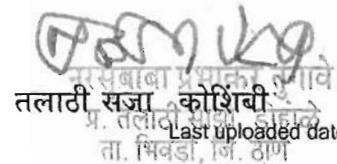 नरसिंबाबा प्रभाकर तुंगावे
तलाठी सजा कोशिंबी
प्र. तलाठी सांझा, डोहाळे
Last uploaded dat
ता. भिवंडी, जि. ठाणे